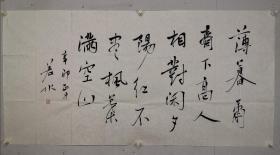 薄暮
下高人
相對閑夕
陽紅不
盡楓葉
滿空山
辛卯
若水